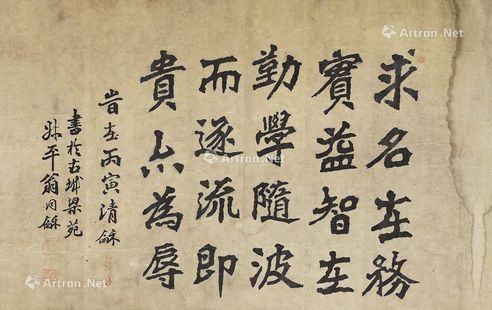 求名在務
實益智在
勤學隨波
而遂流即
貴亦為辱
旹在丙寅清龢
書於古城梁苑
叔平翁同龢
Artron.Net
Artron.Net
Artron.Net
Artron.Net
Artron.Net